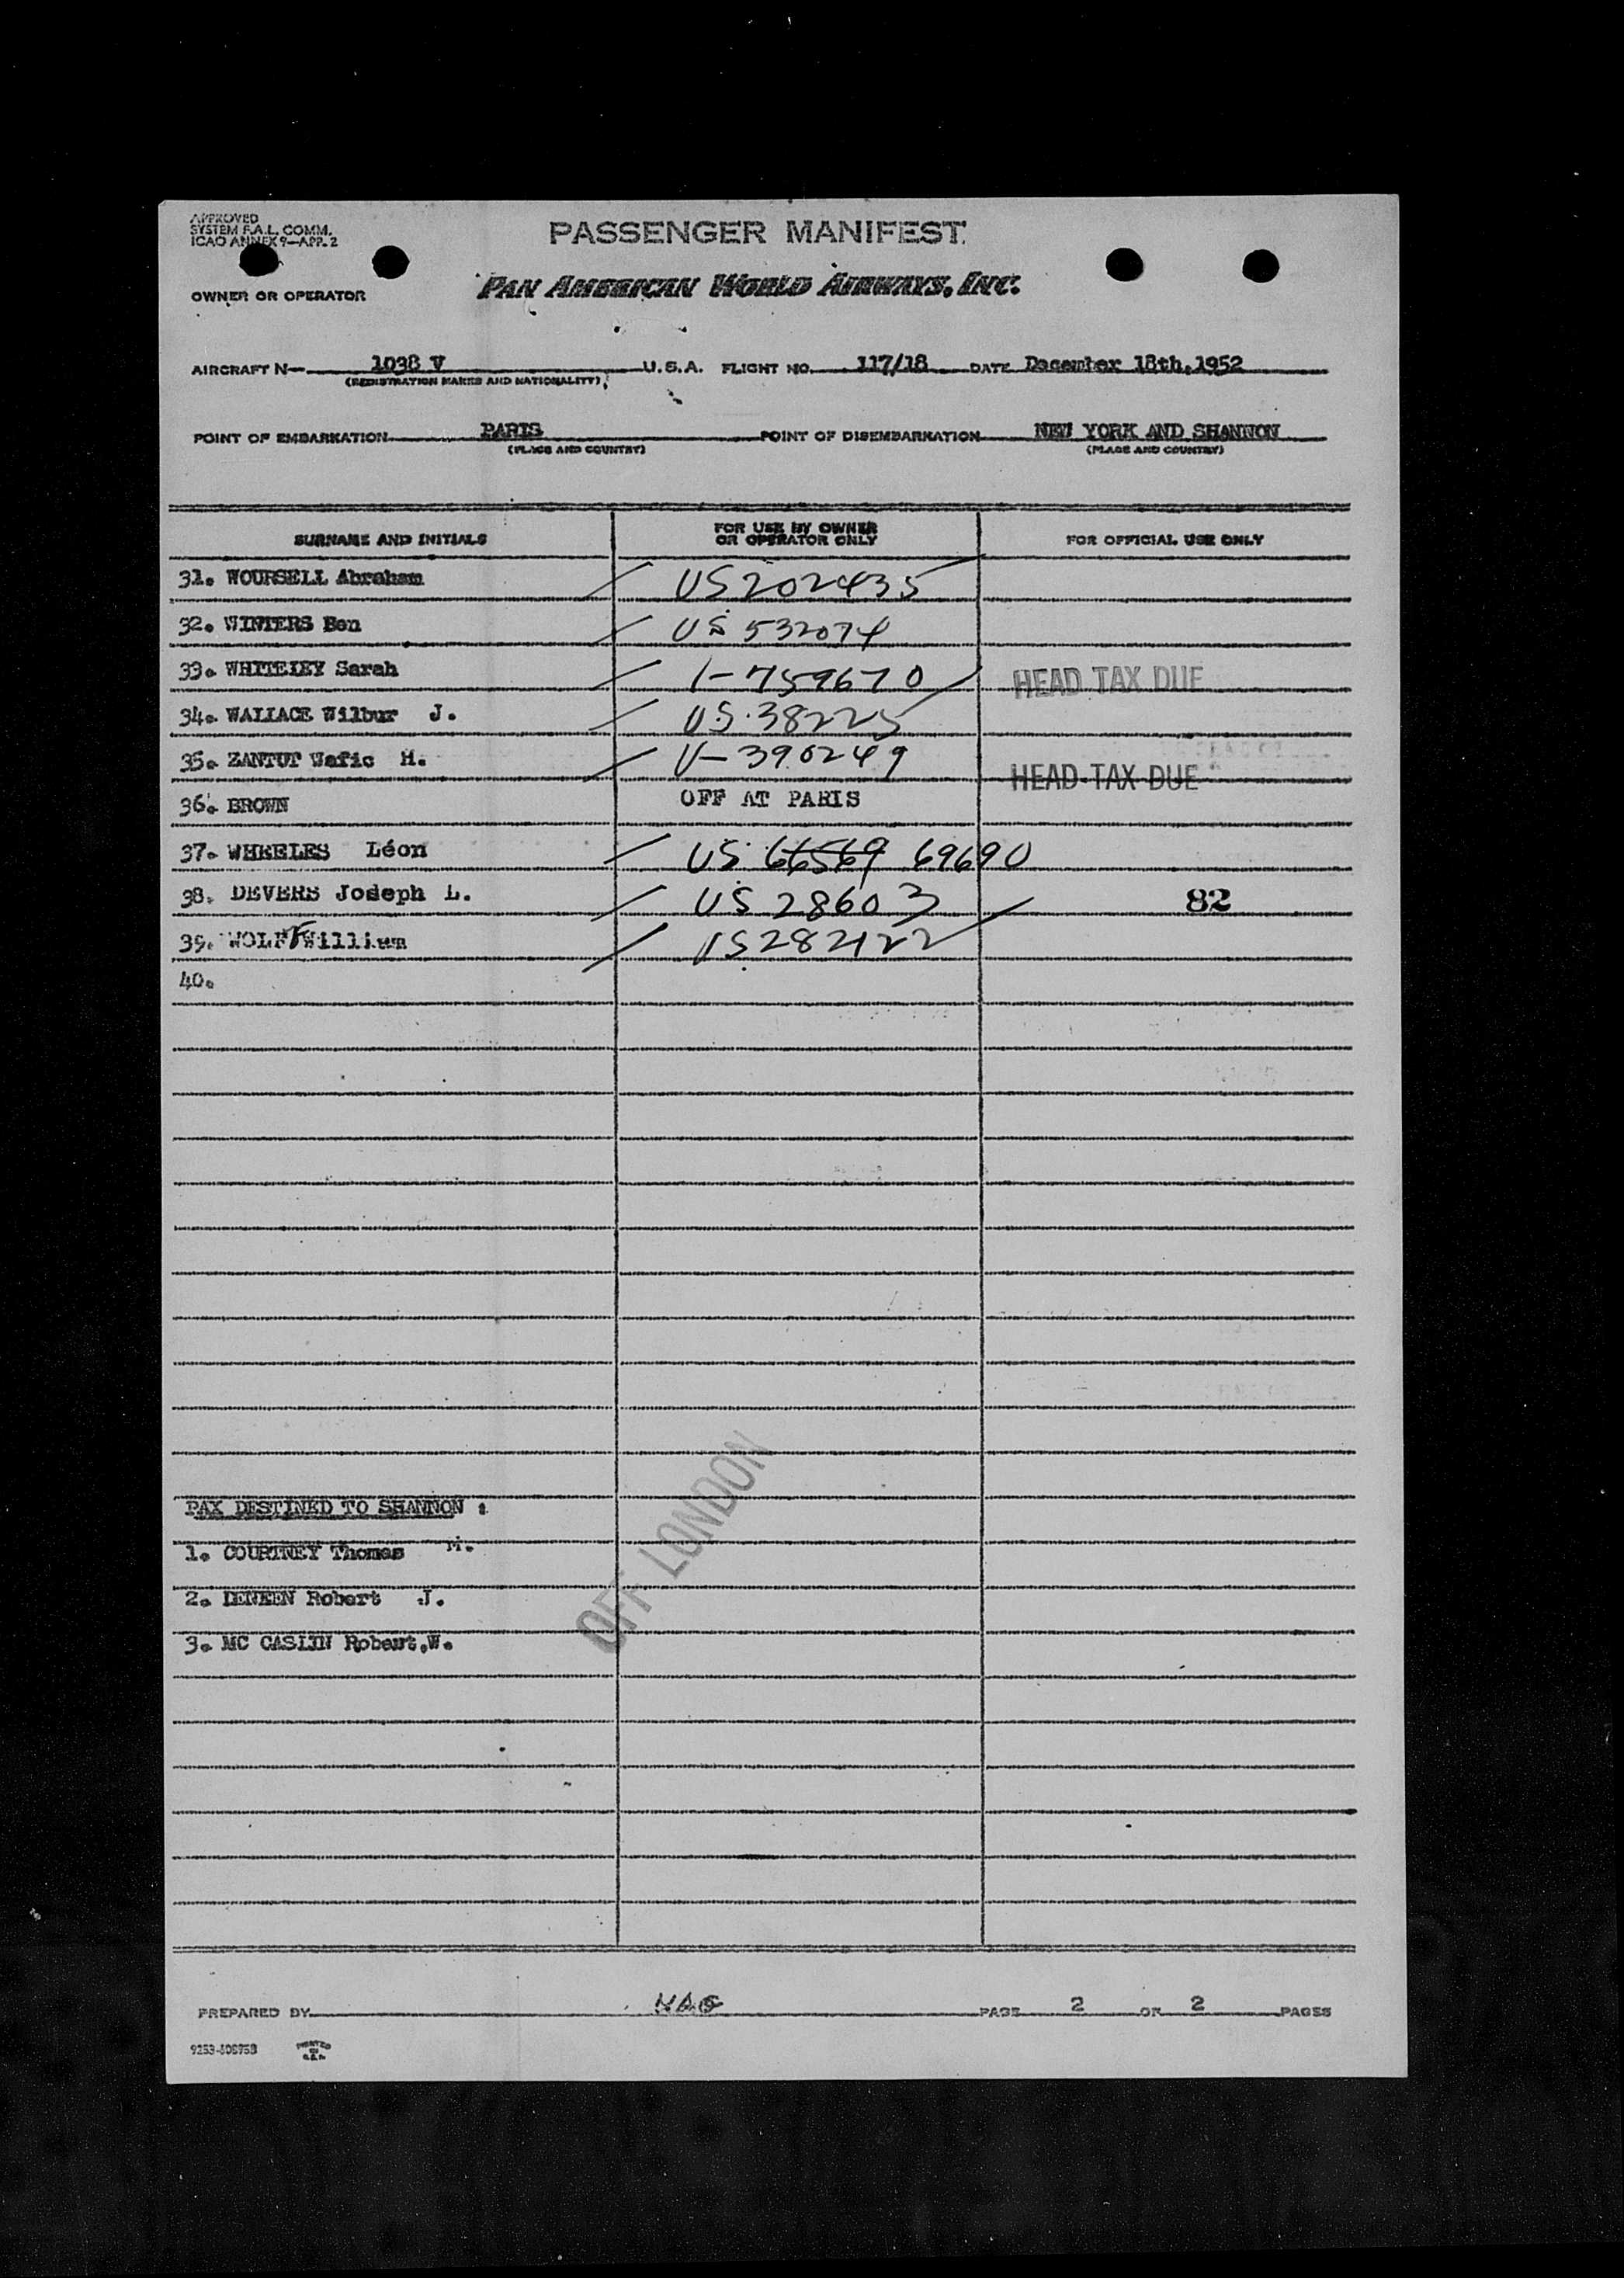 APPROVED
SYSTEM F.A.L. COMM.
ICAO ANNEX 9—APP. 2
PASSENGER MANIFEST
OWNER OR OPERATOR
PAN AMERICAN WORLD AIRWAYS, INC.
AIRCRAFT N— 1038 V U.S.A. FLIGHT NO. 117/18 DATE December 18th, 1952
(REGISTRATION MARKS AND NATIONALITY)
POINT OF EMBARKATION PARIS POINT OF DISEMBARKATION NEW YORK AND SHANNON
(PLACE AND COUNTRY) (PLACE AND COUNTRY)
SURNAME AND INITIALS FOR USE BY OWNER OR OPERATOR ONLY FOR OFFICIAL USE ONLY
31. WOURSELL Abraham US 202435
32. WINTERS Ben US 532074
33. WHITELEY Sarah 1-759670 HEAD TAX DUE
34. WALLACE Wilbur J. US 38225
35. ZANTUT Wafic H. V-390249 HEAD TAX DUE
36. BROWN OFF AT PARIS
37. WHEELES Léon US 66569 69690
38. DEVERS Joseph L. US 28603 82
39. WOLFF William US 282122
40.
PAX DESTINED TO SHANNON :
1. COURTNEY Thomas M.
2. DENEEN Robert J.
3. MC CASLIN Robert,W.
OFF LONDON
PREPARED BY PAGE 2 OF 2 PAGES
PRINTED IN U.S.A.